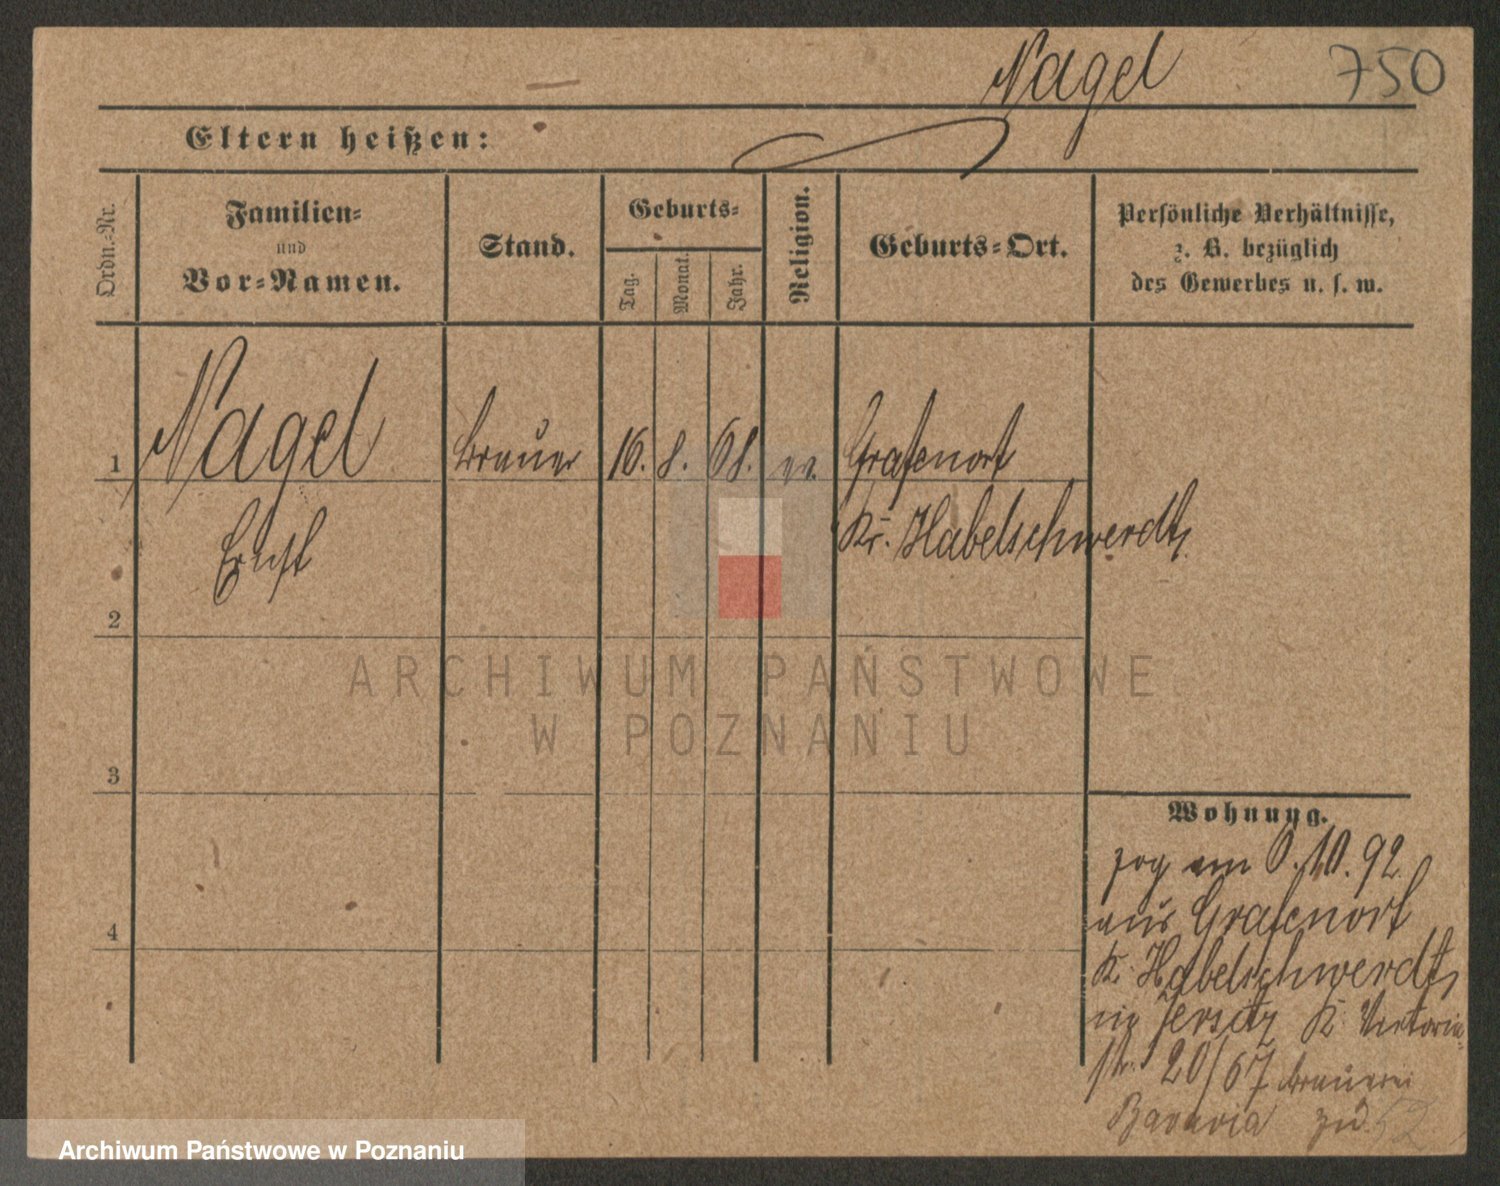 Nagel 750
Eltern heißen:
Ordn.-Nr.
Familien-
und
Vor-Namen.
Stand.
Geburts-
Tag.
Monat.
Jahr.
Religion.
Geburts-Ort.
Persönliche Verhältnisse,
z. B. bezüglich
des Gewerbes u. s. w.
1 Nagel Brauer 16. 8. 68. ev. Grafenort
Ernst Kr. Habelschwerdt
2
3
4
Wohnung.
zog am 10. 92
aus Grafenort
Kr. Habelschwerdt
Jersitz K. Victoria-
str. 20/67 Brauerei
Bavaria zu
ARCHIWUM PAŃSTWOWE
W POZNANIU
Archiwum Państwowe w Poznaniu